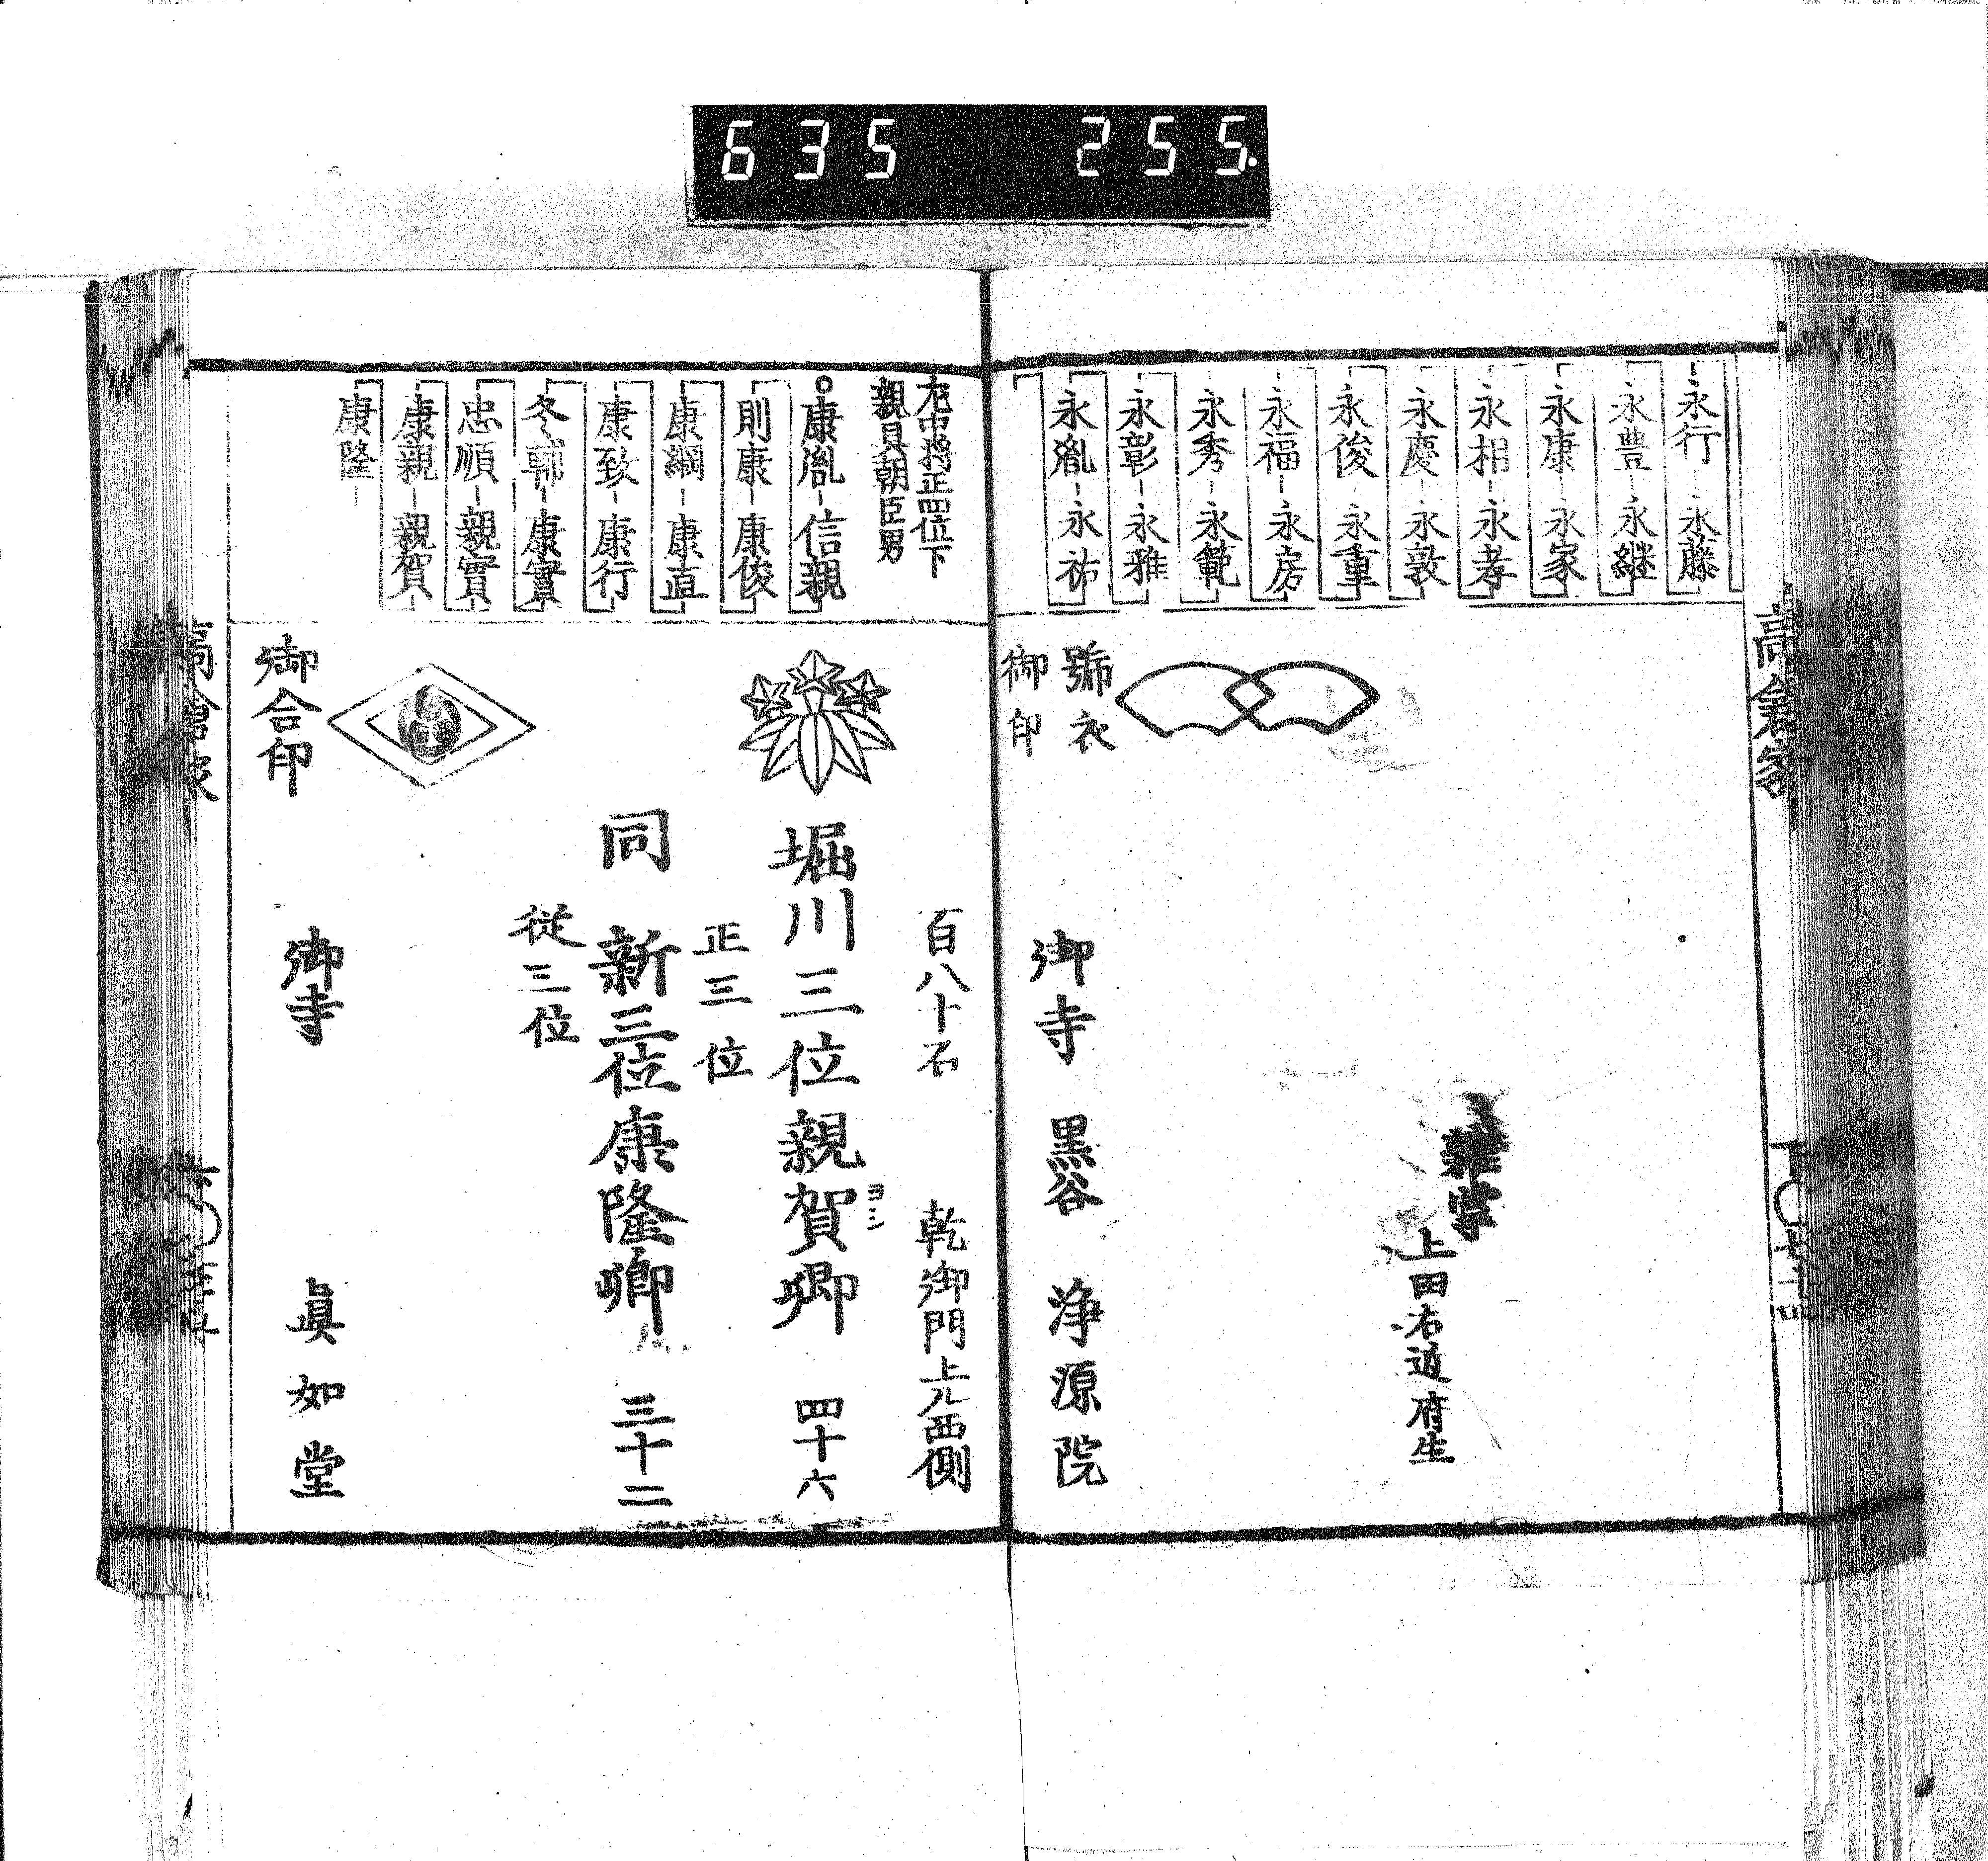 635 255
永行―永藤
永豊―永継
永康―永家
永相―永孝
永慶―永敦
永俊―永重
永福―永房
永秀―永範
永彰―永雅
永胤―永祐
號衣
御印
上田右近府生
御寺 黒谷 浄源院
左中将正四位下
親具朝臣男
康胤―信親
則康―康俊
康綱―康直
康致―康行
冬輔―康實
忠順―親實
康親―親賀
康隆
百八十石 乾御門上ル西側
堀川三位親賀卿 四十六
ヨシ
正三位
同 新三位康隆卿 三十二
從三位
御合印
御寺 眞如堂